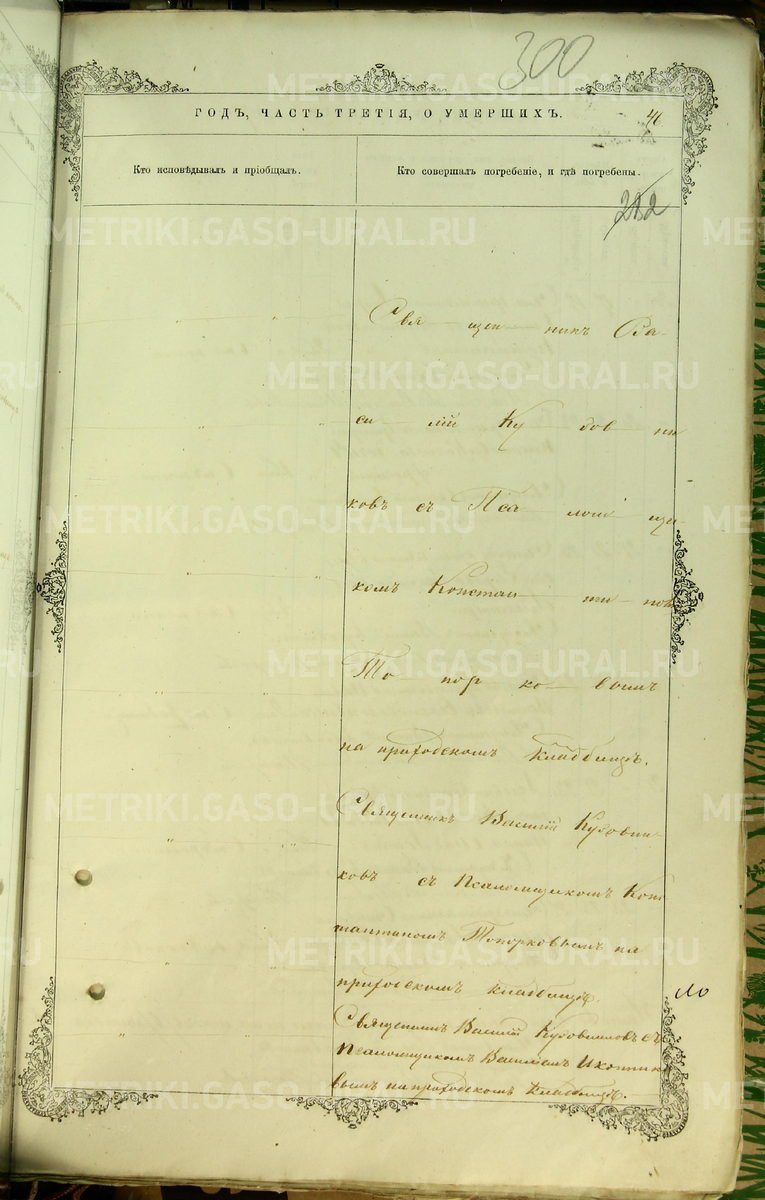 300
ГОДЪ, ЧАСТЬ ТРЕТІЯ, О УМЕРШИХЪ.
Кто исповѣдывалъ и пріобщалъ.
Кто совершалъ погребеніе, и гдѣ погребены.
Свя щен никъ Ва-
си лій Ку дов ни
ковъ съ Пса лом щи-
комъ Констан ти ном
То пор ко вымъ
на приходскомъ кладбищѣ.
Священникъ Василій Кудовни-
ковъ съ Псаломщикомъ Кон
стантиномъ Топорковымъ на
приходскомъ кладбищѣ.
Священникъ Василій Кудовниковъ съ
Псаломщикомъ Василіемъ
вымъ на приходскомъ кладбищѣ.
METRIKI.GASO-URAL.RU